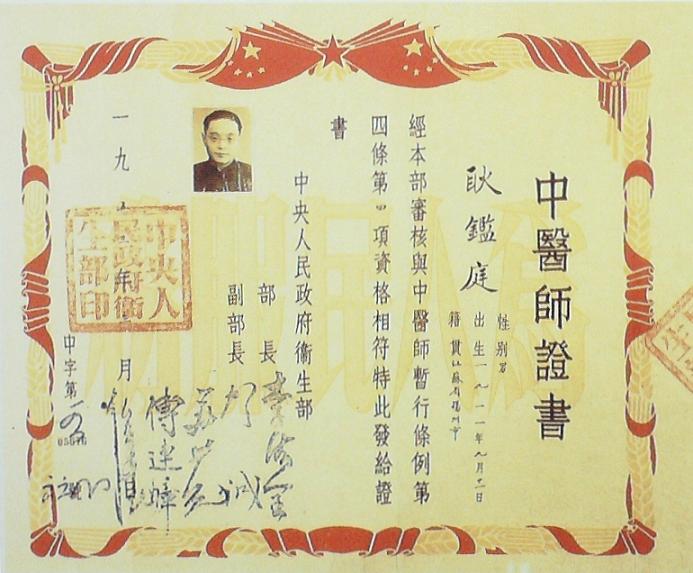 中醫師證書
耿鑑庭
性别男
出生一九一一年九月十一日
籍貫江蘇省揚州市
經本部審核與中醫師暫行條例第
四條第四項資格相符特此發給證
書
中央人民政府衞生部
部長李德全
副部長賀誠
蘇井觀
傅連暲
一九
月
中央人民政府衞生部印
中字第
為人民服務